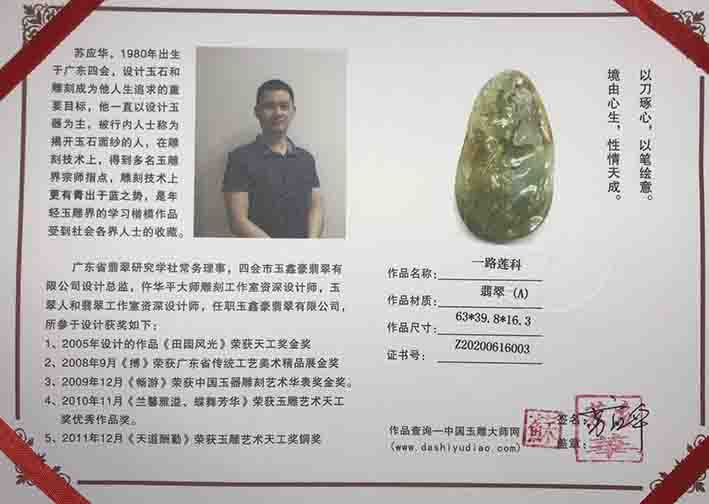 苏应华，1980年出生
于广东四会，设计玉石和
雕刻成为他人生追求的重
要目标，他一直以设计玉
器为主，被行内人士称为
揭开玉石面纱的人，在雕
刻技术上，得到多名玉雕
界宗师指点，雕刻技术上
更有青出于蓝之势，是年
轻玉雕界的学习楷模作品
受到社会各界人士的收藏。
广东省翡翠研究学社常务理事，四会市玉鑫豪翡翠有
限公司设计总监，仵华平大师雕刻工作室资深设计师，玉
翠人和翡翠工作室资深设计师，任职玉鑫豪翡翠有限公司，
所参于设计获奖如下：
1、2005年设计的作品《田园风光》荣获天工奖金奖
2、2008年9月《搏》荣获广东省传统工艺美术精品展金奖
3、2009年12月《畅游》荣获中国玉器雕刻艺术华表奖金奖。
4、2010年11月《兰馨雅溢、蝶舞芳华》荣获玉雕艺术天工
奖优秀作品奖。
5、2011年12月《天道酬勤》荣获玉雕艺术天工奖铜奖
以刀琢心，以笔绘意。
境由心生，性情天成。
作品名称：一路莲科
作品材质：翡翠 (A)
作品尺寸：63*39.8*16.3
证书号：Z20200616003
作品查询—中国玉雕大师网
(www.dashiyudiao.com)
签名：苏应华
盖章：